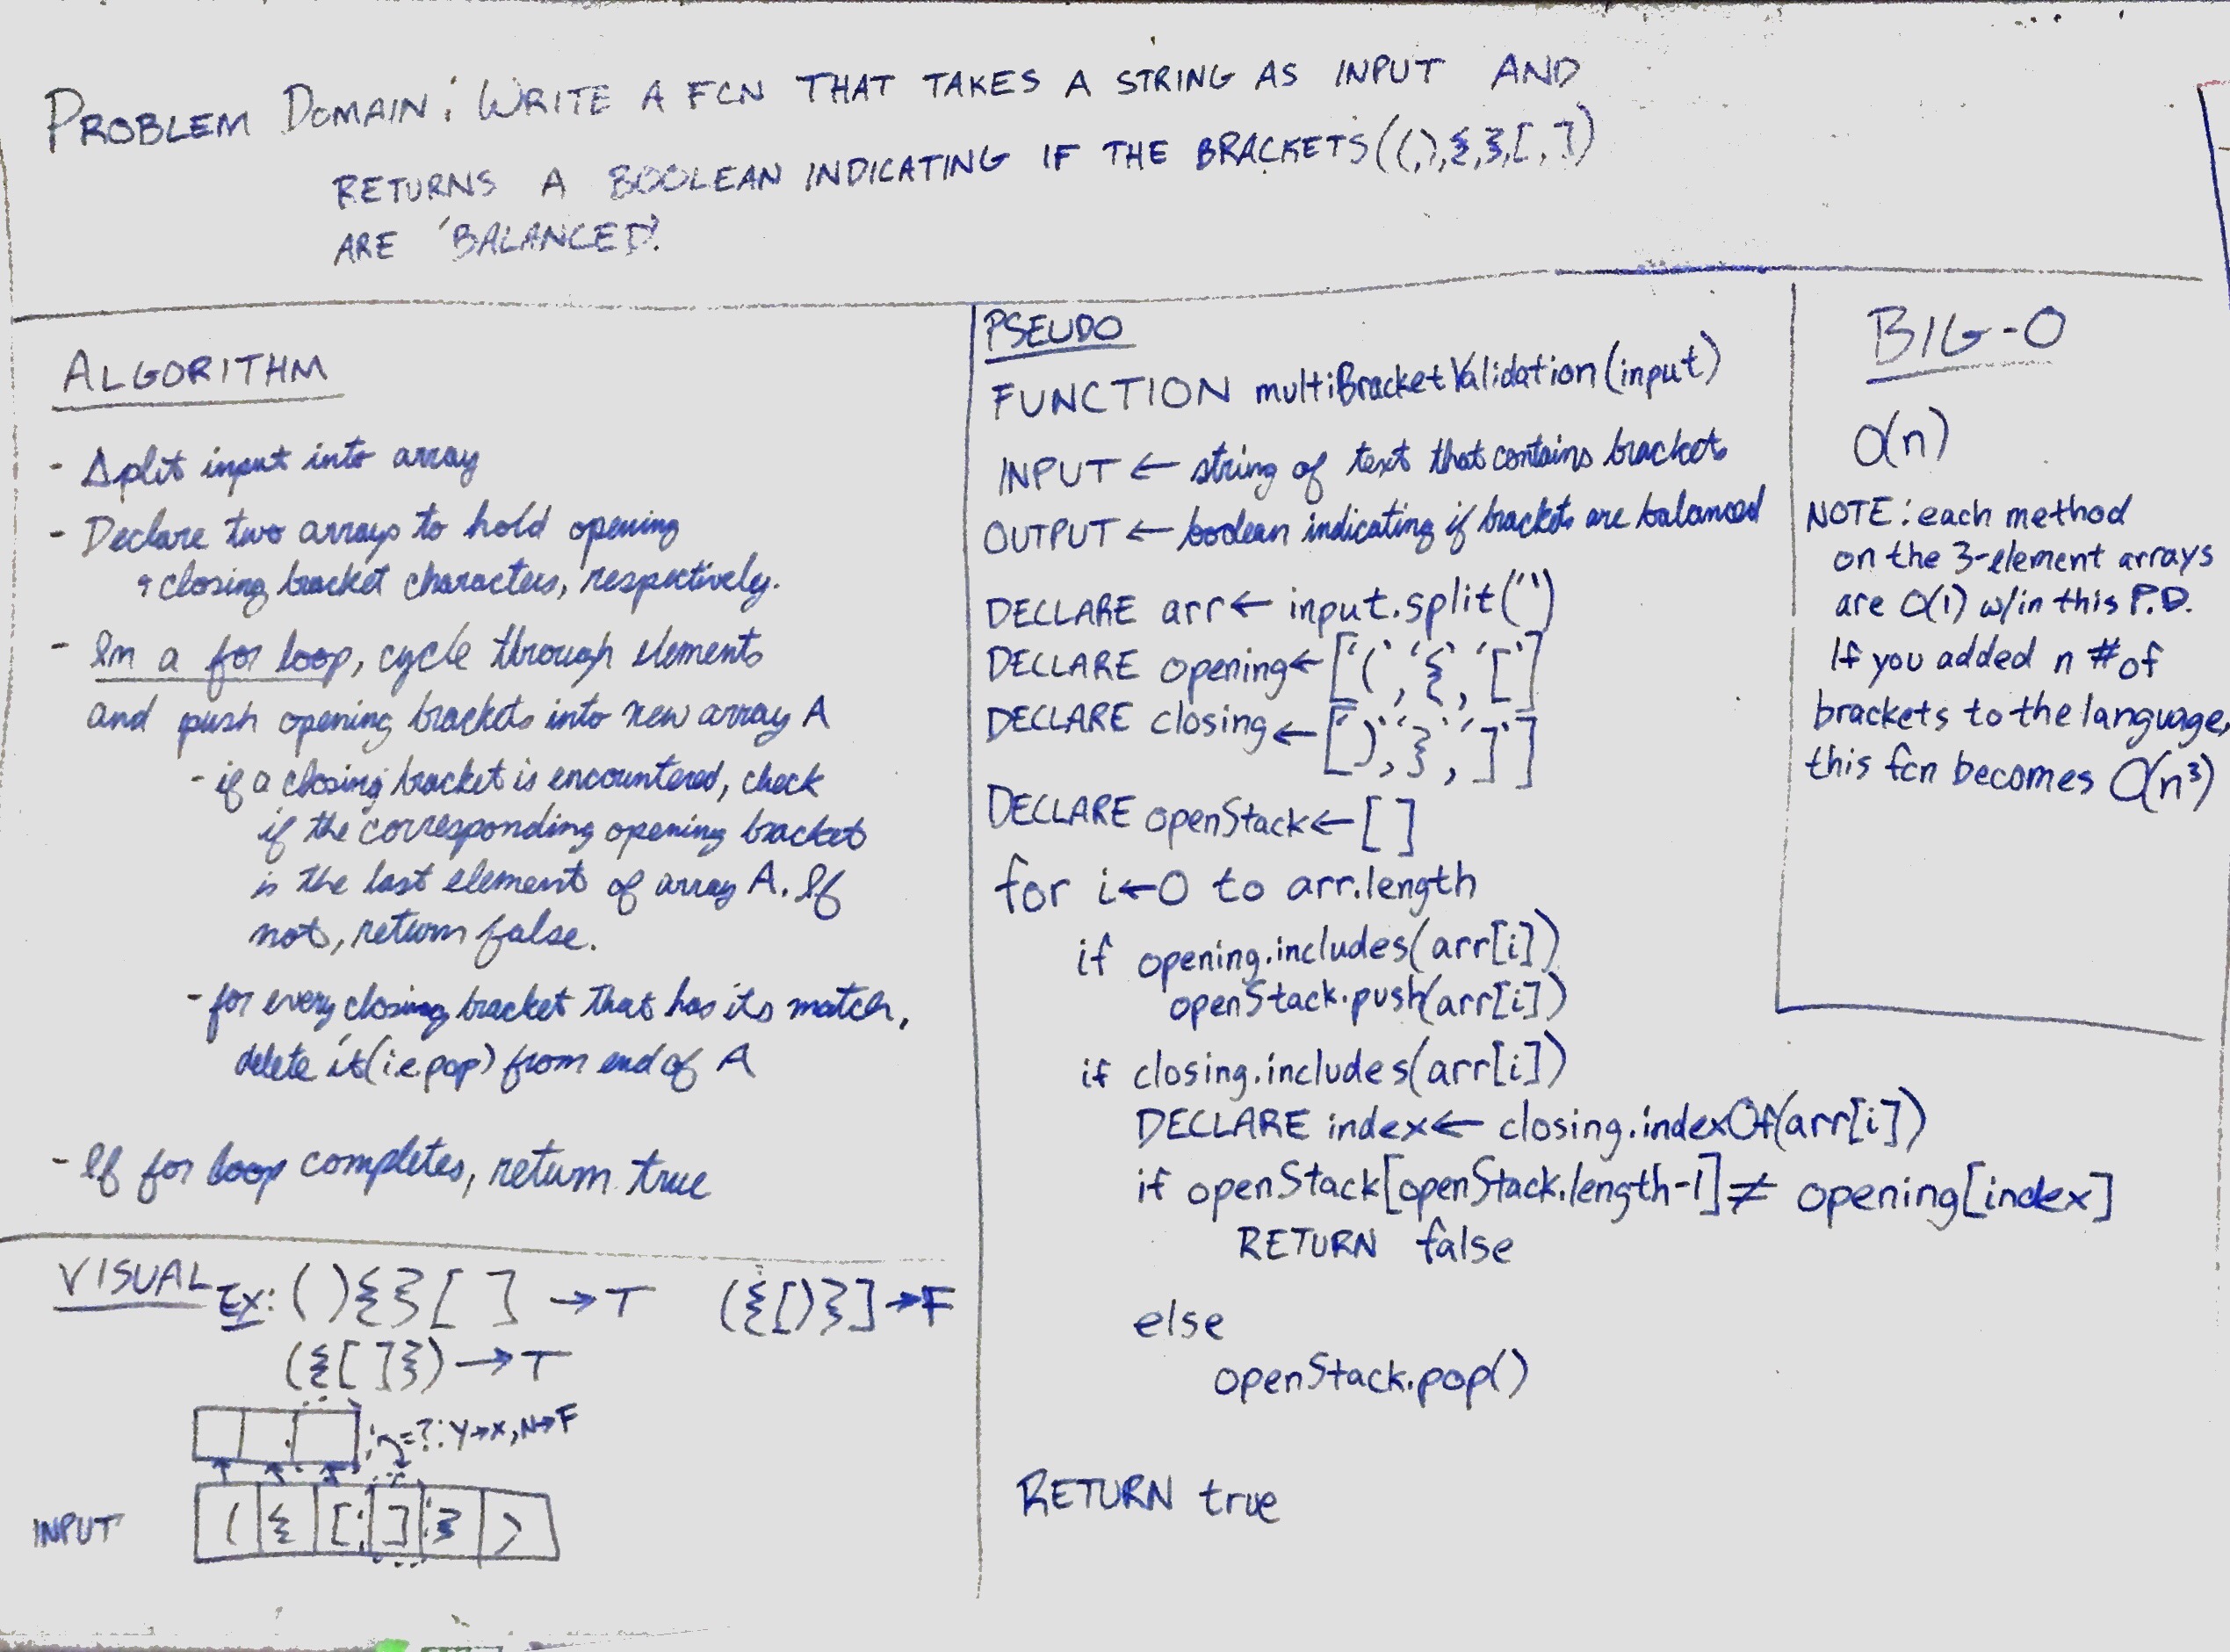 PROBLEM DOMAIN: WRITE A FCN THAT TAKES A STRING AS INPUT AND
RETURNS A BOOLEAN INDICATING IF THE BRACKETS ((,),{,},[,])
ARE 'BALANCED'.
ALGORITHM
- Split input into array
- Declare two arrays to hold opening
& closing bracket characters, respectively.
- In a for loop, cycle through elements
and push opening brackets into new array A
- if a closing bracket is encountered, check
if the corresponding opening bracket
is the last element of array A. If
not, return false.
- for every closing bracket that has its match,
delete it (i.e. pop) from end of A
- If for loop completes, return true
VISUAL EX: (){}[ ] → T ({[)}] → F
({[ ]}) → T
=?: Y→X, N→F
INPUT ( { [ ] } )
PSEUDO
FUNCTION multiBracketValidation(input)
INPUT ← string of text that contains brackets
OUTPUT ← boolean indicating if brackets are balanced
DECLARE arr ← input.split('')
DECLARE opening ← ['(', '{', '[']
DECLARE closing ← [')', '}', ']']
DECLARE openStack ← [ ]
for i ← 0 to arr.length
if opening.includes(arr[i])
openStack.push(arr[i])
if closing.includes(arr[i])
DECLARE index ← closing.indexOf(arr[i])
if openStack[openStack.length-1] ≠ opening[index]
RETURN false
else
openStack.pop()
RETURN true
BIG-O
O(n)
NOTE: each method
on the 3-element arrays
are O(1) w/in this P.D.
If you added n # of
brackets to the language,
this fcn becomes O(n³)